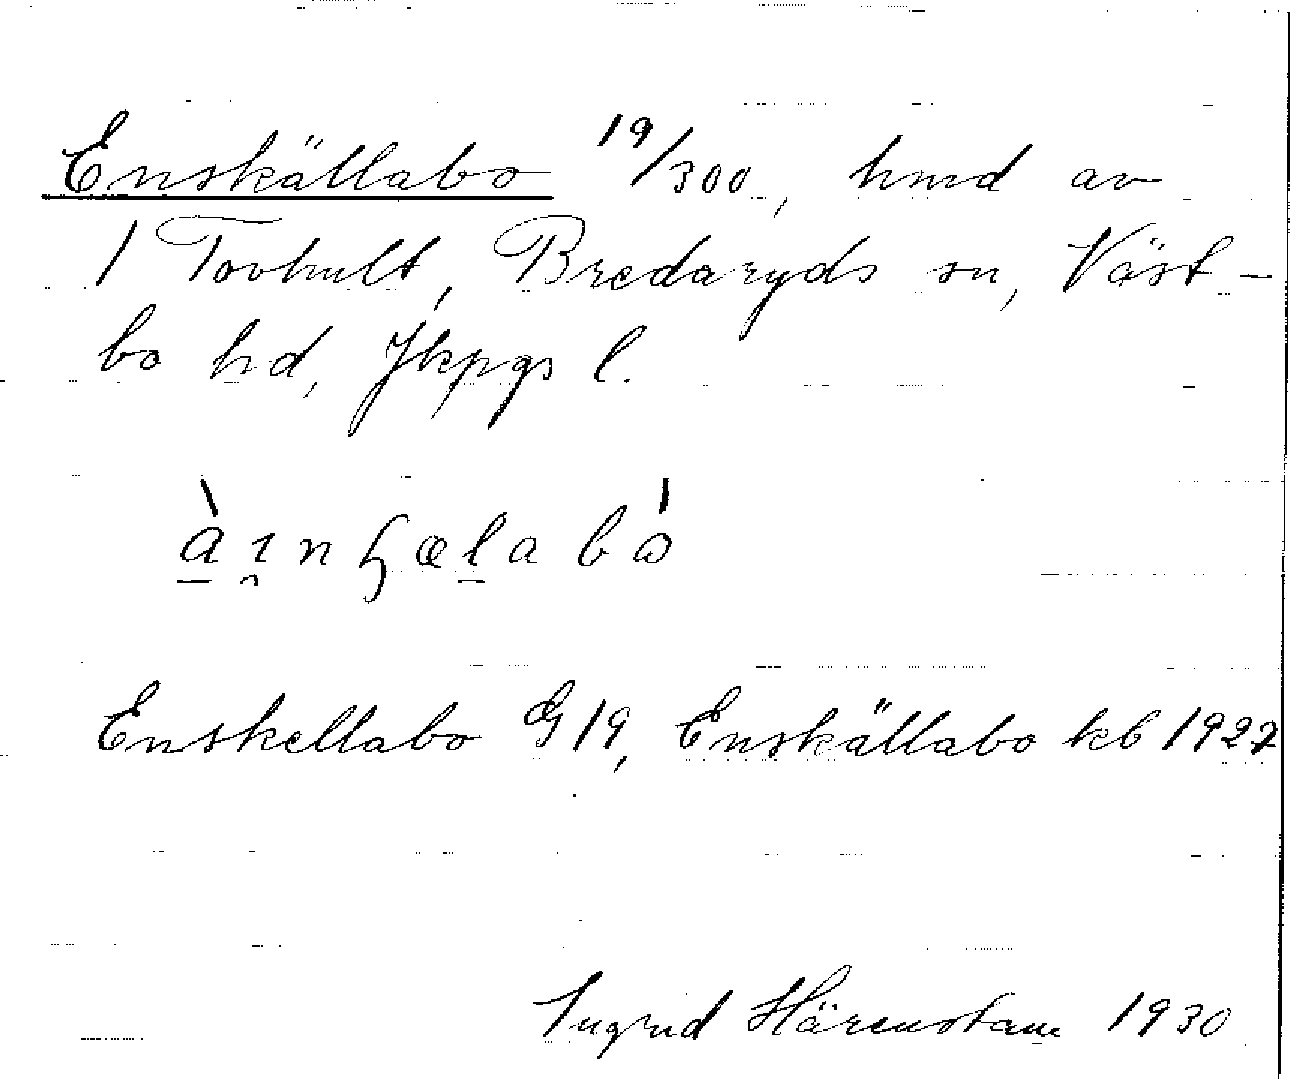 Enskällabo 19/300, hmd av
1 Tovhult, Bredaryds sn, Väst-
bo hd, Jkpgs l.
Enskellabo G19, Enskällabo kb 1927
Ingrid Härenstam 1930